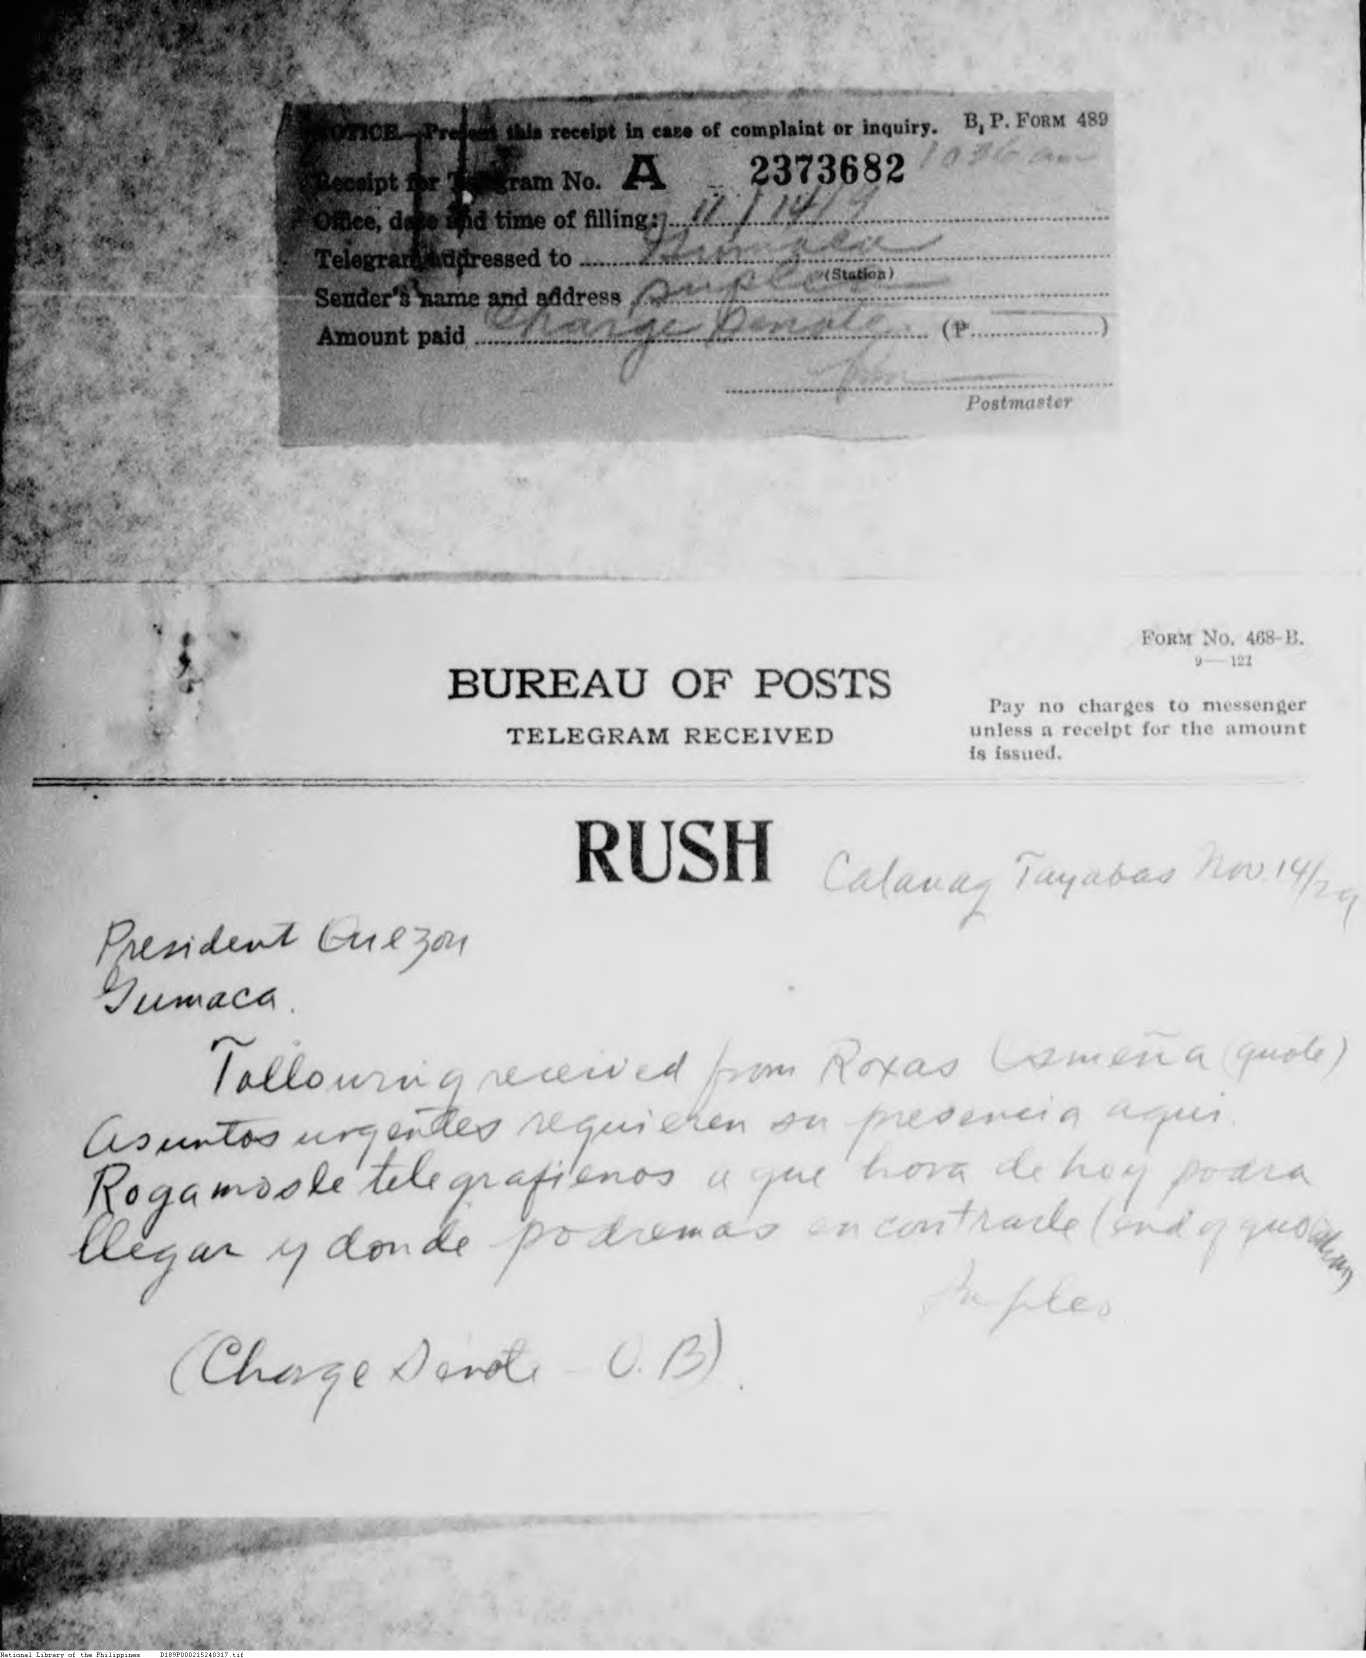 NOTICE.—Present this receipt in case of complaint or inquiry. B. P. FORM 489
Receipt for Telegram No. A 2373682 1036 am
Office, date and time of filling: 11/14/9
Telegram addressed to Gumaca
(Station)
Sender's name and address
Amount paid Charge Senate (₱ )
Postmaster
FORM NO. 468-B.
9—121
BUREAU OF POSTS
TELEGRAM RECEIVED
Pay no charges to messenger
unless a receipt for the amount
is issued.
RUSH
Calauag Tayabas Nov. 14/29
President Quezon
Gumaca.
Following received from Roxas Osmeña (quote)
Asuntos urgentes requieren su presencia aqui.
Rogamosle telegrafienos a que hora de hoy podra
llegar y donde podremos encontrarle (end of quotation)
(Charge Senate - O.B)
National Library of the Philippines D189P000215240317.tif